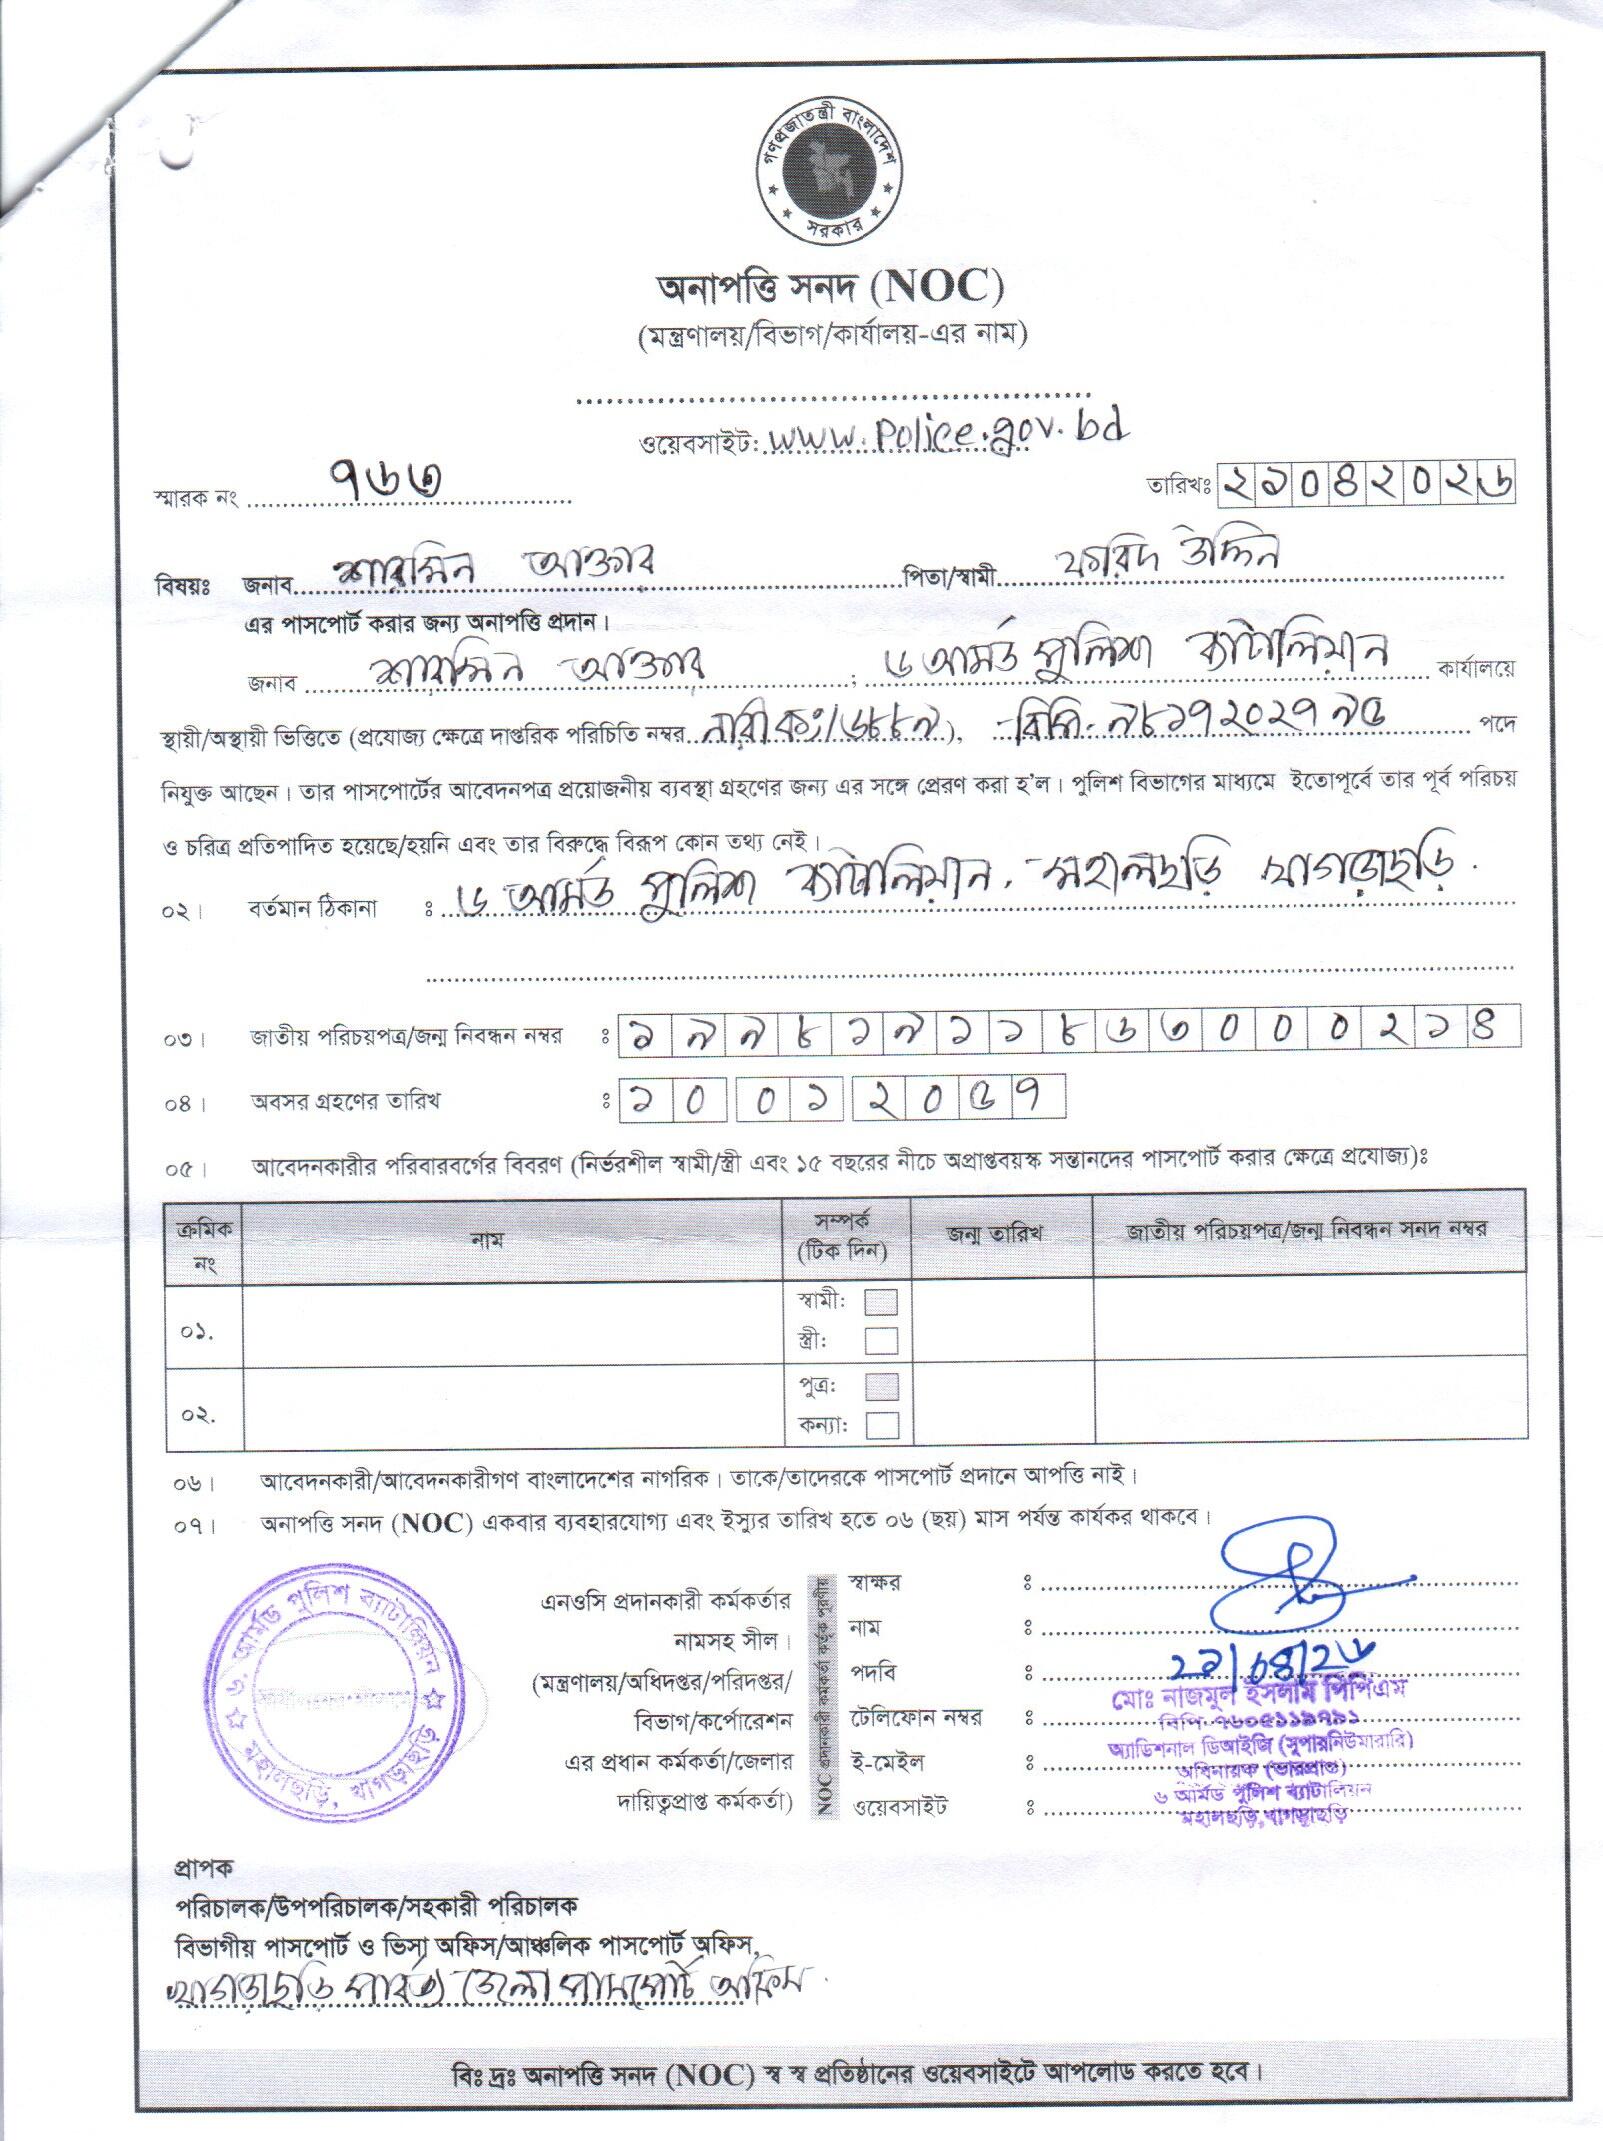 গণপ্রজাতন্ত্রী বাংলাদেশ
সরকার
অনাপত্তি সনদ (NOC)
(মন্ত্রণালয়/বিভাগ/কার্যালয়-এর নাম)
ওয়েবসাইট: www.police.gov.bd
স্মারক নং ৭৬৩
তারিখঃ ২১০৪২০২৬
বিষয়ঃ জনাব শারমিন আক্তার পিতা/স্বামী ফরিদ উদ্দিন
এর পাসপোর্ট করার জন্য অনাপত্তি প্রদান।
জনাব শারমিন আক্তার ; ৬ আর্মড পুলিশ ব্যাটালিয়ান কার্যালয়ে
স্থায়ী/অস্থায়ী ভিত্তিতে (প্রযোজ্য ক্ষেত্রে দাপ্তরিক পরিচিতি নম্বর নারী কং/৬৮৮৯), বিপি- ৯৮১৭২০২৭৯৫ পদে
নিযুক্ত আছেন। তার পাসপোর্টের আবেদনপত্র প্রয়োজনীয় ব্যবস্থা গ্রহণের জন্য এর সঙ্গে প্রেরণ করা হ'ল। পুলিশ বিভাগের মাধ্যমে ইতোপূর্বে তার পূর্ব পরিচয়
ও চরিত্র প্রতিপাদিত হয়েছে/হয়নি এবং তার বিরুদ্ধে বিরূপ কোন তথ্য নেই।
০২। বর্তমান ঠিকানা ঃ ৬ আর্মড পুলিশ ব্যাটালিয়ান, মহালছড়ি খাগড়াছড়ি.
০৩। জাতীয় পরিচয়পত্র/জন্ম নিবন্ধন নম্বর ঃ ১৯৯৮১৯১১৮৬৩০০০২১৪
০৪। অবসর গ্রহণের তারিখ ঃ ১০ ০১ ২০৫৭
০৫। আবেদনকারীর পরিবারবর্গের বিবরণ (নির্ভরশীল স্বামী/স্ত্রী এবং ১৫ বছরের নীচে অপ্রাপ্তবয়স্ক সন্তানদের পাসপোর্ট করার ক্ষেত্রে প্রযোজ্য)ঃ
ক্রমিক নং নাম সম্পর্ক (টিক দিন) জন্ম তারিখ জাতীয় পরিচয়পত্র/জন্ম নিবন্ধন সনদ নম্বর
০১. স্বামী:
স্ত্রী:
০২. পুত্র:
কন্যা:
০৬। আবেদনকারী/আবেদনকারীগণ বাংলাদেশের নাগরিক। তাকে/তাদেরকে পাসপোর্ট প্রদানে আপত্তি নাই।
০৭। অনাপত্তি সনদ (NOC) একবার ব্যবহারযোগ্য এবং ইস্যুর তারিখ হতে ০৬ (ছয়) মাস পর্যন্ত কার্যকর থাকবে।
৬. আর্মড পুলিশ ব্যাটালিয়ন
মহালছড়ি, খাগড়াছড়ি
এনওসি প্রদানকারী কর্মকর্তার
নামসহ সীল।
(মন্ত্রণালয়/অধিদপ্তর/পরিদপ্তর/
বিভাগ/কর্পোরেশন
এর প্রধান কর্মকর্তা/জেলার
দায়িত্বপ্রাপ্ত কর্মকর্তা)
NOC প্রদানকারী কর্মকর্তা কর্তৃক পূরণীয়
স্বাক্ষর ঃ
নাম ঃ
পদবি ঃ ২১/০৪/২৬
টেলিফোন নম্বর ঃ
ই-মেইল ঃ
ওয়েবসাইট ঃ
মোঃ নাজমুল ইসলাম পিপিএম
বিপি-৭৬০৫১১৯৭৯১
অ্যাডিশনাল ডিআইজি (সুপারনিউমারারি)
অধিনায়ক (ভারপ্রাপ্ত)
৬ আর্মড পুলিশ ব্যাটালিয়ন
মহালছড়ি,খাগড়াছড়ি
প্রাপক
পরিচালক/উপপরিচালক/সহকারী পরিচালক
বিভাগীয় পাসপোর্ট ও ভিসা অফিস/আঞ্চলিক পাসপোর্ট অফিস,
খাগড়াছড়ি পার্বত্য জেলা পাসপোর্ট অফিস.
বিঃ দ্রঃ অনাপত্তি সনদ (NOC) স্ব স্ব প্রতিষ্ঠানের ওয়েবসাইটে আপলোড করতে হবে।